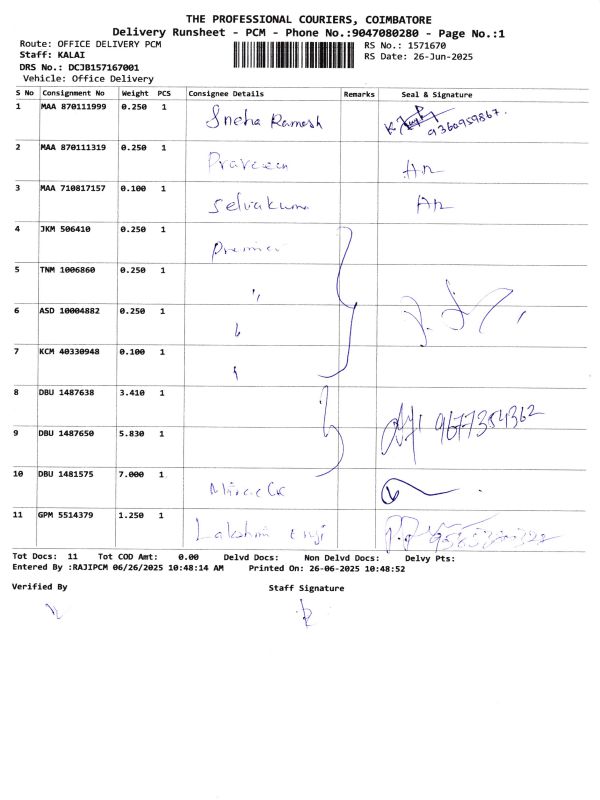 THE PROFESSIONAL COURIERS, COIMBATORE
Delivery Runsheet - PCM - Phone No.:9047080280 - Page No.:1
Route: OFFICE DELIVERY PCM
Staff: KALAI
DRS No.: DCJB157167001
Vehicle: Office Delivery
RS No.: 1571670
RS Date: 26-Jun-2025
S No Consignment No Weight PCS Consignee Details Remarks Seal & Signature
1 MAA 870111999 0.250 1 Sneha Ramesh 9360959867.
2 MAA 870111319 0.250 1 Praveen
3 MAA 710817157 0.100 1 Selvakumar
4 JKM 506410 0.250 1 Premier
5 TNM 1006860 0.250 1 "
6 ASD 10004882 0.250 1
7 KCM 40330948 0.100 1
8 DBU 1487638 3.410 1
9 DBU 1487650 5.830 1 9677354362
10 DBU 1481575 7.000 1
11 GPM 5514379 1.250 1 Lakshmi
Tot Docs: 11 Tot COD Amt: 0.00 Delvd Docs: Non Delvd Docs: Delvy Pts:
Entered By :RAJIPCM 06/26/2025 10:48:14 AM Printed On: 26-06-2025 10:48:52
Verified By Staff Signature